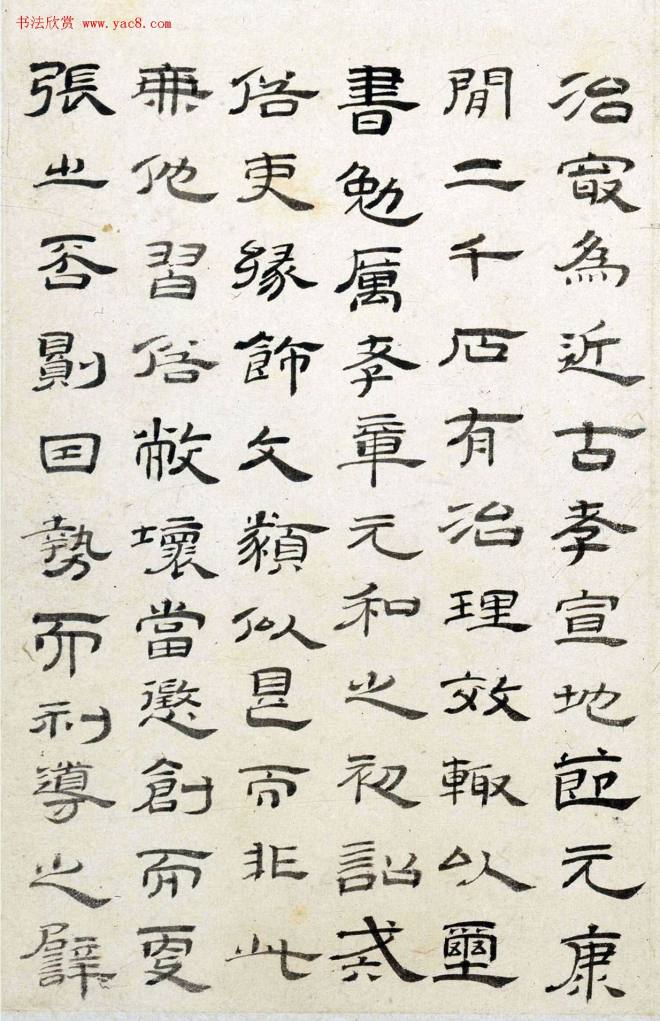 书法欣赏
www.yac8.com
治㝡為近古孝宣地節元康
閒二千石有治理效輒以璽
書勉厲孝章元和之初詔戒
俗吏緣飾文類似是而非此
兼他習俗敝壞當懲創而更
張之否則因勢而利導之譬